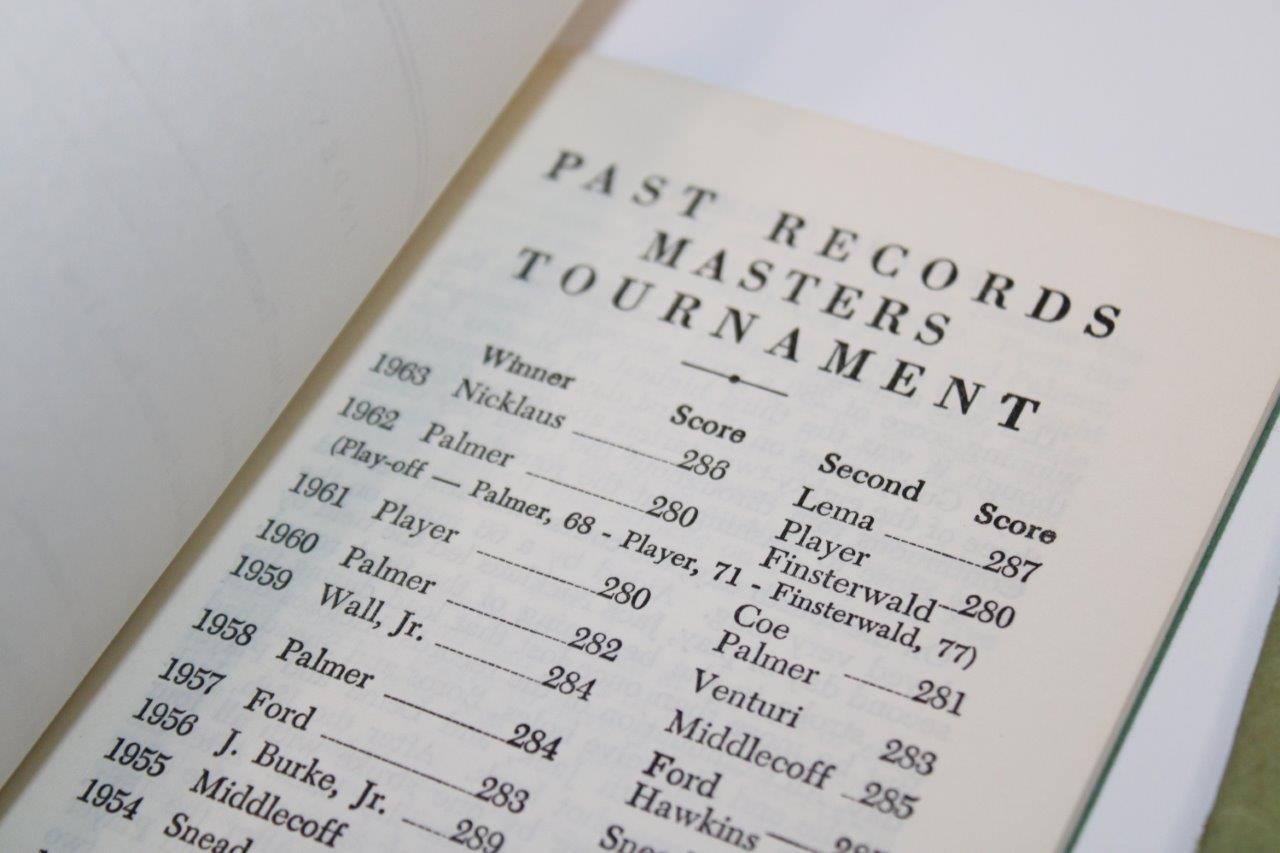 PAST RECORDS
MASTERS
TOURNAMENT
Winner Score Second Score
1963 Nicklaus 286 Lema 287
1962 Palmer 280 Player
Finsterwald 280
(Play-off — Palmer, 68 - Player, 71 - Finsterwald, 77)
1961 Player 280 Coe
Palmer 281
1960 Palmer 282 Venturi 283
1959 Wall, Jr. 284 Middlecoff 285
1958 Palmer 284 Ford
Hawkins
1957 Ford 283
1956 J. Burke, Jr. 289
1955 Middlecoff
1954 Snead